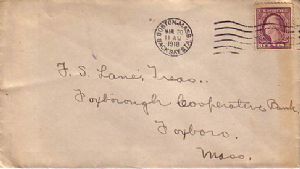 BOSTON, MASS.
BACK BAY STA.
MAR 20
11 AM
1918
F. S. Lane, Treas.
Foxborough Cooperative Bank,
Foxboro.
Mass.